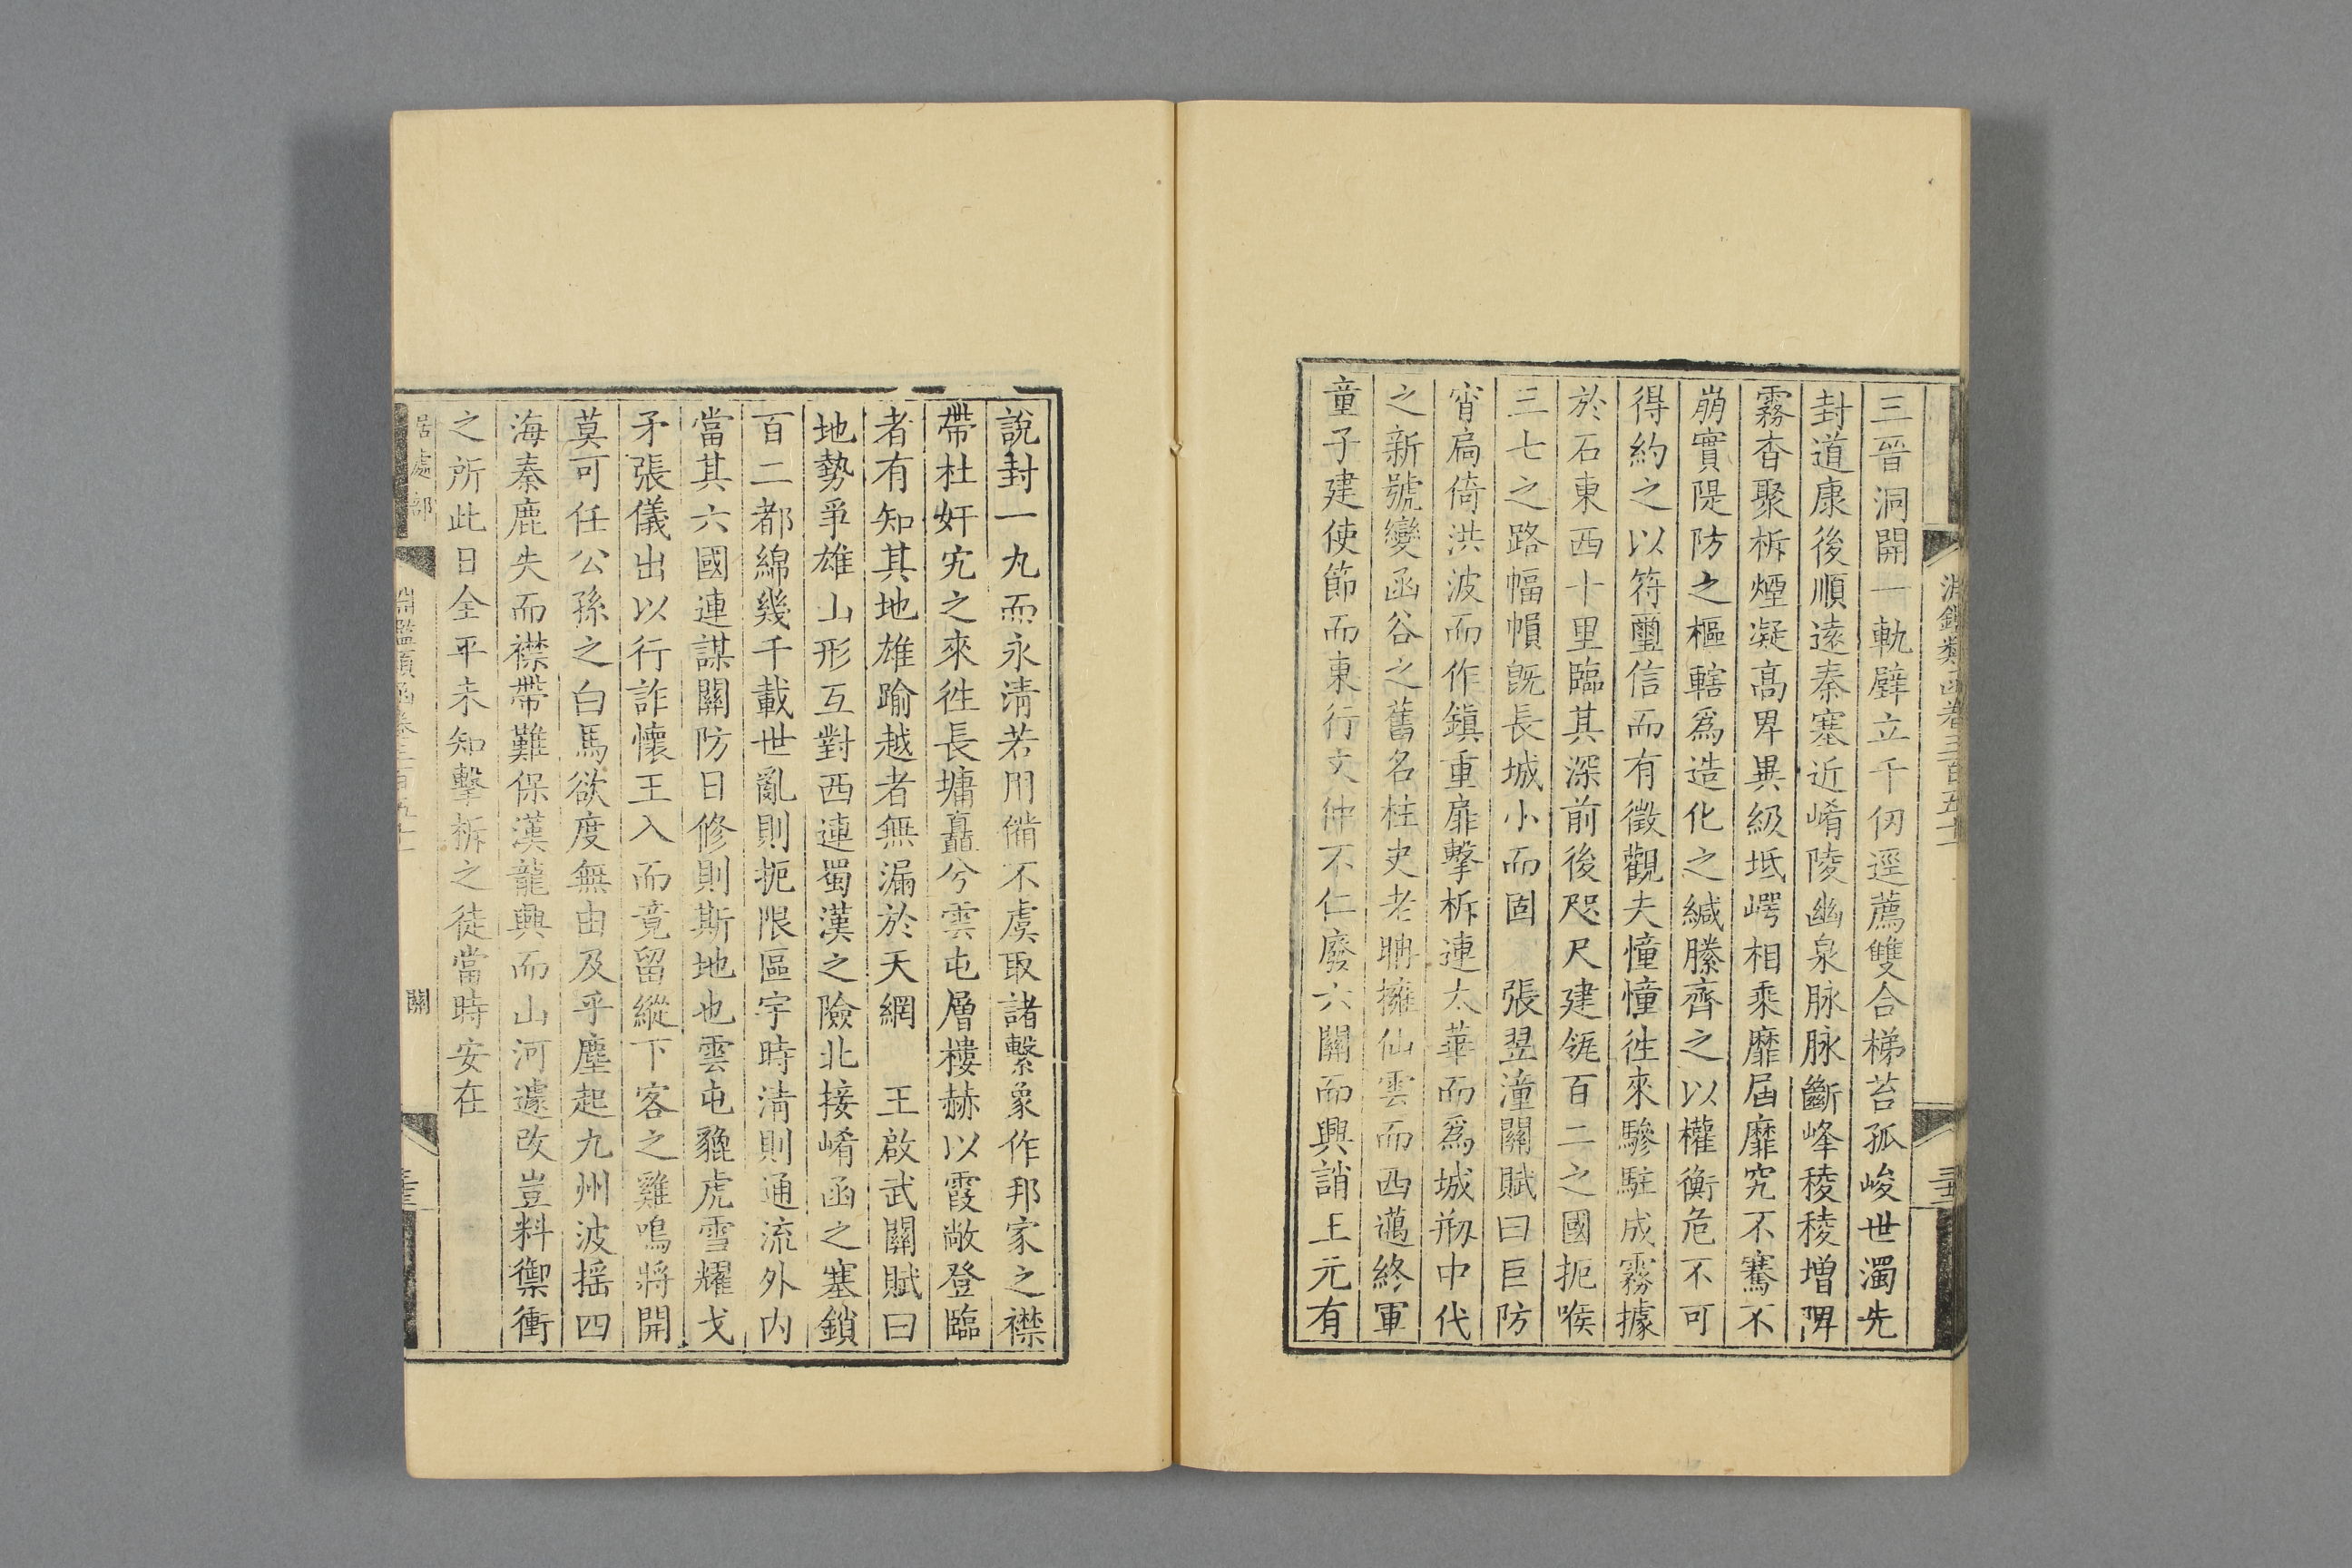 淵鑑類函卷三百五十
三晉洞開一軌壁立千仞逕薦雙合梯苔孤峻世濁先
封道康後順遠秦塞近崤陵幽泉脉脉斷峰稜稜增陴
霧杳聚柝煙凝高卑異級坻崿相乘靡屆靡究不騫不
崩實隄防之樞轄爲造化之緘縢齊之以權衡危不可
得約之以符璽信而有徵觀夫憧憧徃來驂駐成霧據
於石東西十里臨其深前後咫尺建瓴百二之國扼喉
三七之路幅幁旣長城小而固　張翌潼關賦曰巨防
宵扃倚洪波而作鎮重扉擊柝連太華而爲城剏中代
之新號變函谷之舊名柱史老聃擁仙雲而西邁終軍
童子建使節而東行文仲不仁廢六關而興誚王元有
說封一丸而永淸若用備不虞取諸繫象作邦家之襟
帶杜奸宄之來徃長墉矗兮雲屯層樓赫以霞敞登臨
者有知其地雄踰越者無漏於天網　王啟武關賦曰
地勢爭雄山形互對西連蜀漢之險北接崤函之塞鎖
百二都綿幾千載世亂則扼限區宇時淸則通流外內
當其六國連謀關防日修則斯地也雲屯貔虎雪耀戈
矛張儀出以行詐懷王入而竟留縱下客之雞鳴將開
莫可任公孫之白馬欲度無由及乎塵起九州波搖四
海秦鹿失而襟帶難保漢龍興而山河遽改豈料禦衝
之所此日全平未知擊柝之徒當時安在
居處部
淵鑑類函卷三百五十
關